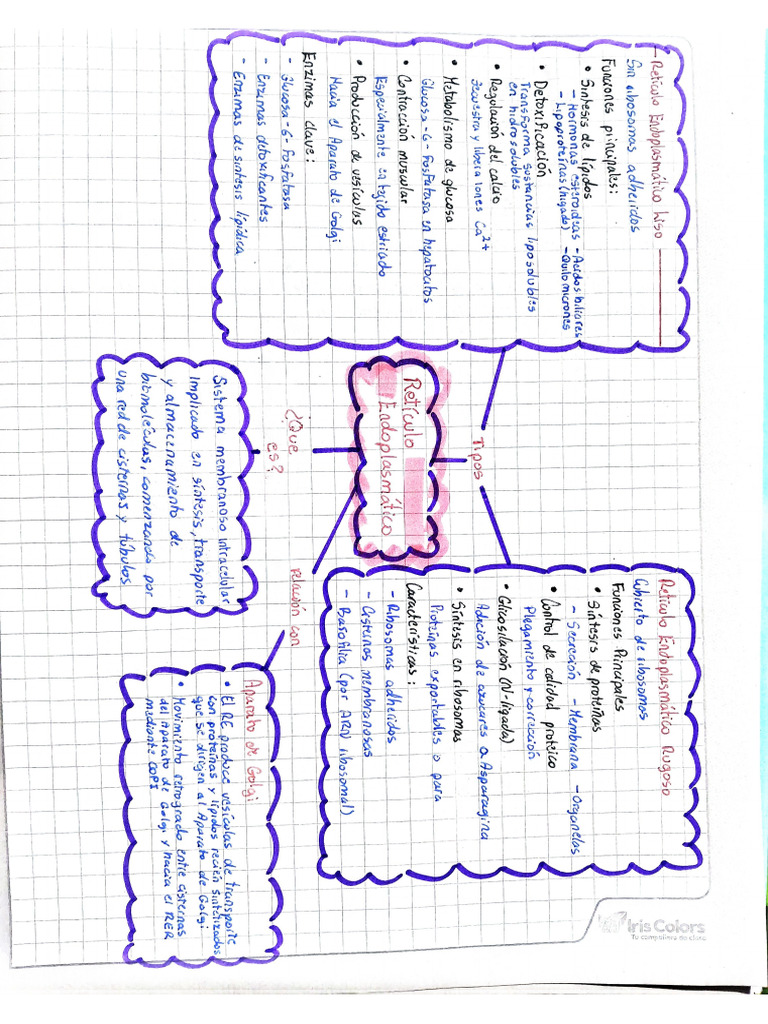 Retículo Endoplasmático Liso
Sin ribosomas adheridos
Funciones principales:
• Síntesis de lípidos
- Hormonas esteroideas - Ácidos biliares
- Lipoproteínas (hígado) - Quilomicrones
• Detoxificación
Transforma sustancias liposolubles
en hidrosolubles
• Regulación del calcio
Secuestra y libera iones Ca²⁺
• Metabolismo de glucosa
Glucosa-6-Fosfatasa en hepatocitos
• Contracción muscular
Especialmente en tejido estriado
• Producción de vesículas
Hacia el Aparato de Golgi
Enzimas clave:
- Glucosa-6-Fosfatasa
- Enzimas detoxificantes
- Enzimas de síntesis lipídica
Retículo Endoplasmático Rugoso
Cubierto de ribosomas
Funciones Principales
• Síntesis de proteínas
- Secreción - Membrana - Organelos
• Control de calidad proteico
Plegamiento y corrección
• Glicosilación (N-ligada)
Adición de azúcares a Asparagina
• Síntesis en ribosomas
Proteínas exportables o para
Características:
- Ribosomas adheridos
- Cisternas membranosas
- Basofilia (por ARN ribosomal)
Tipos
Retículo
Endoplasmático
¿Que
es?
Sistema membranoso intracelular
implicado en síntesis, transporte
y almacenamiento de
biomoléculas, comenzando por
una red de cisternas y túbulos
relación con
Aparato de Golgi
• El RE produce vesículas de transporte
con proteínas y lípidos recién sintetizados
que se dirigen al Aparato de Golgi
• Movimiento retrogrado entre cisternas
del Aparato de Golgi y hacia el RER
mediante COPI
Iris Colors
Tu compañero de clase